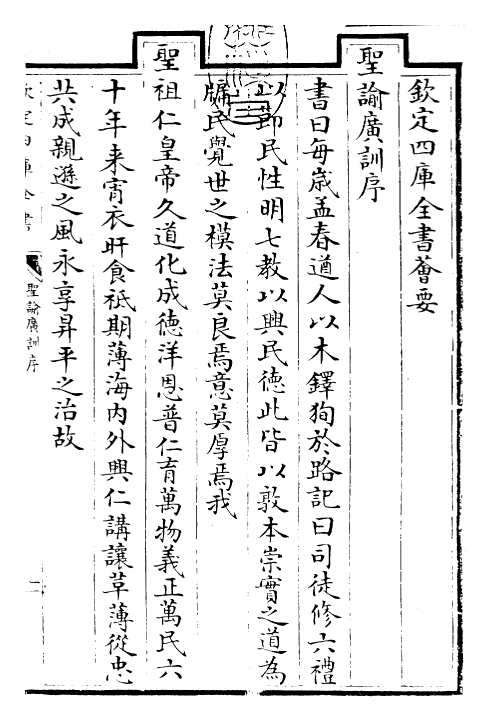 欽定四庫全書薈要
聖諭廣訓序
書曰每歲孟春遒人以木鐸狥於路記曰司徒修六禮
以節民性明七教以興民德此皆以敦本崇實之道為
牖民覺世之模法莫良焉意莫厚焉我
聖祖仁皇帝久道化成德洋恩普仁育萬物義正萬民六
十年来宵衣旰食祗期薄海內外興仁講讓革薄從忠
共成親遜之風永享昇平之治故
欽定四庫全書
聖諭廣訓序